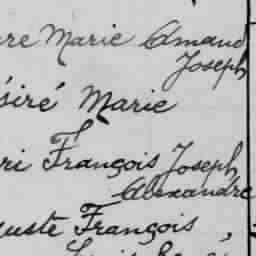 re Marie Amand
Joseph
siré Marie
ri François Joseph
Alexandre
uste François,